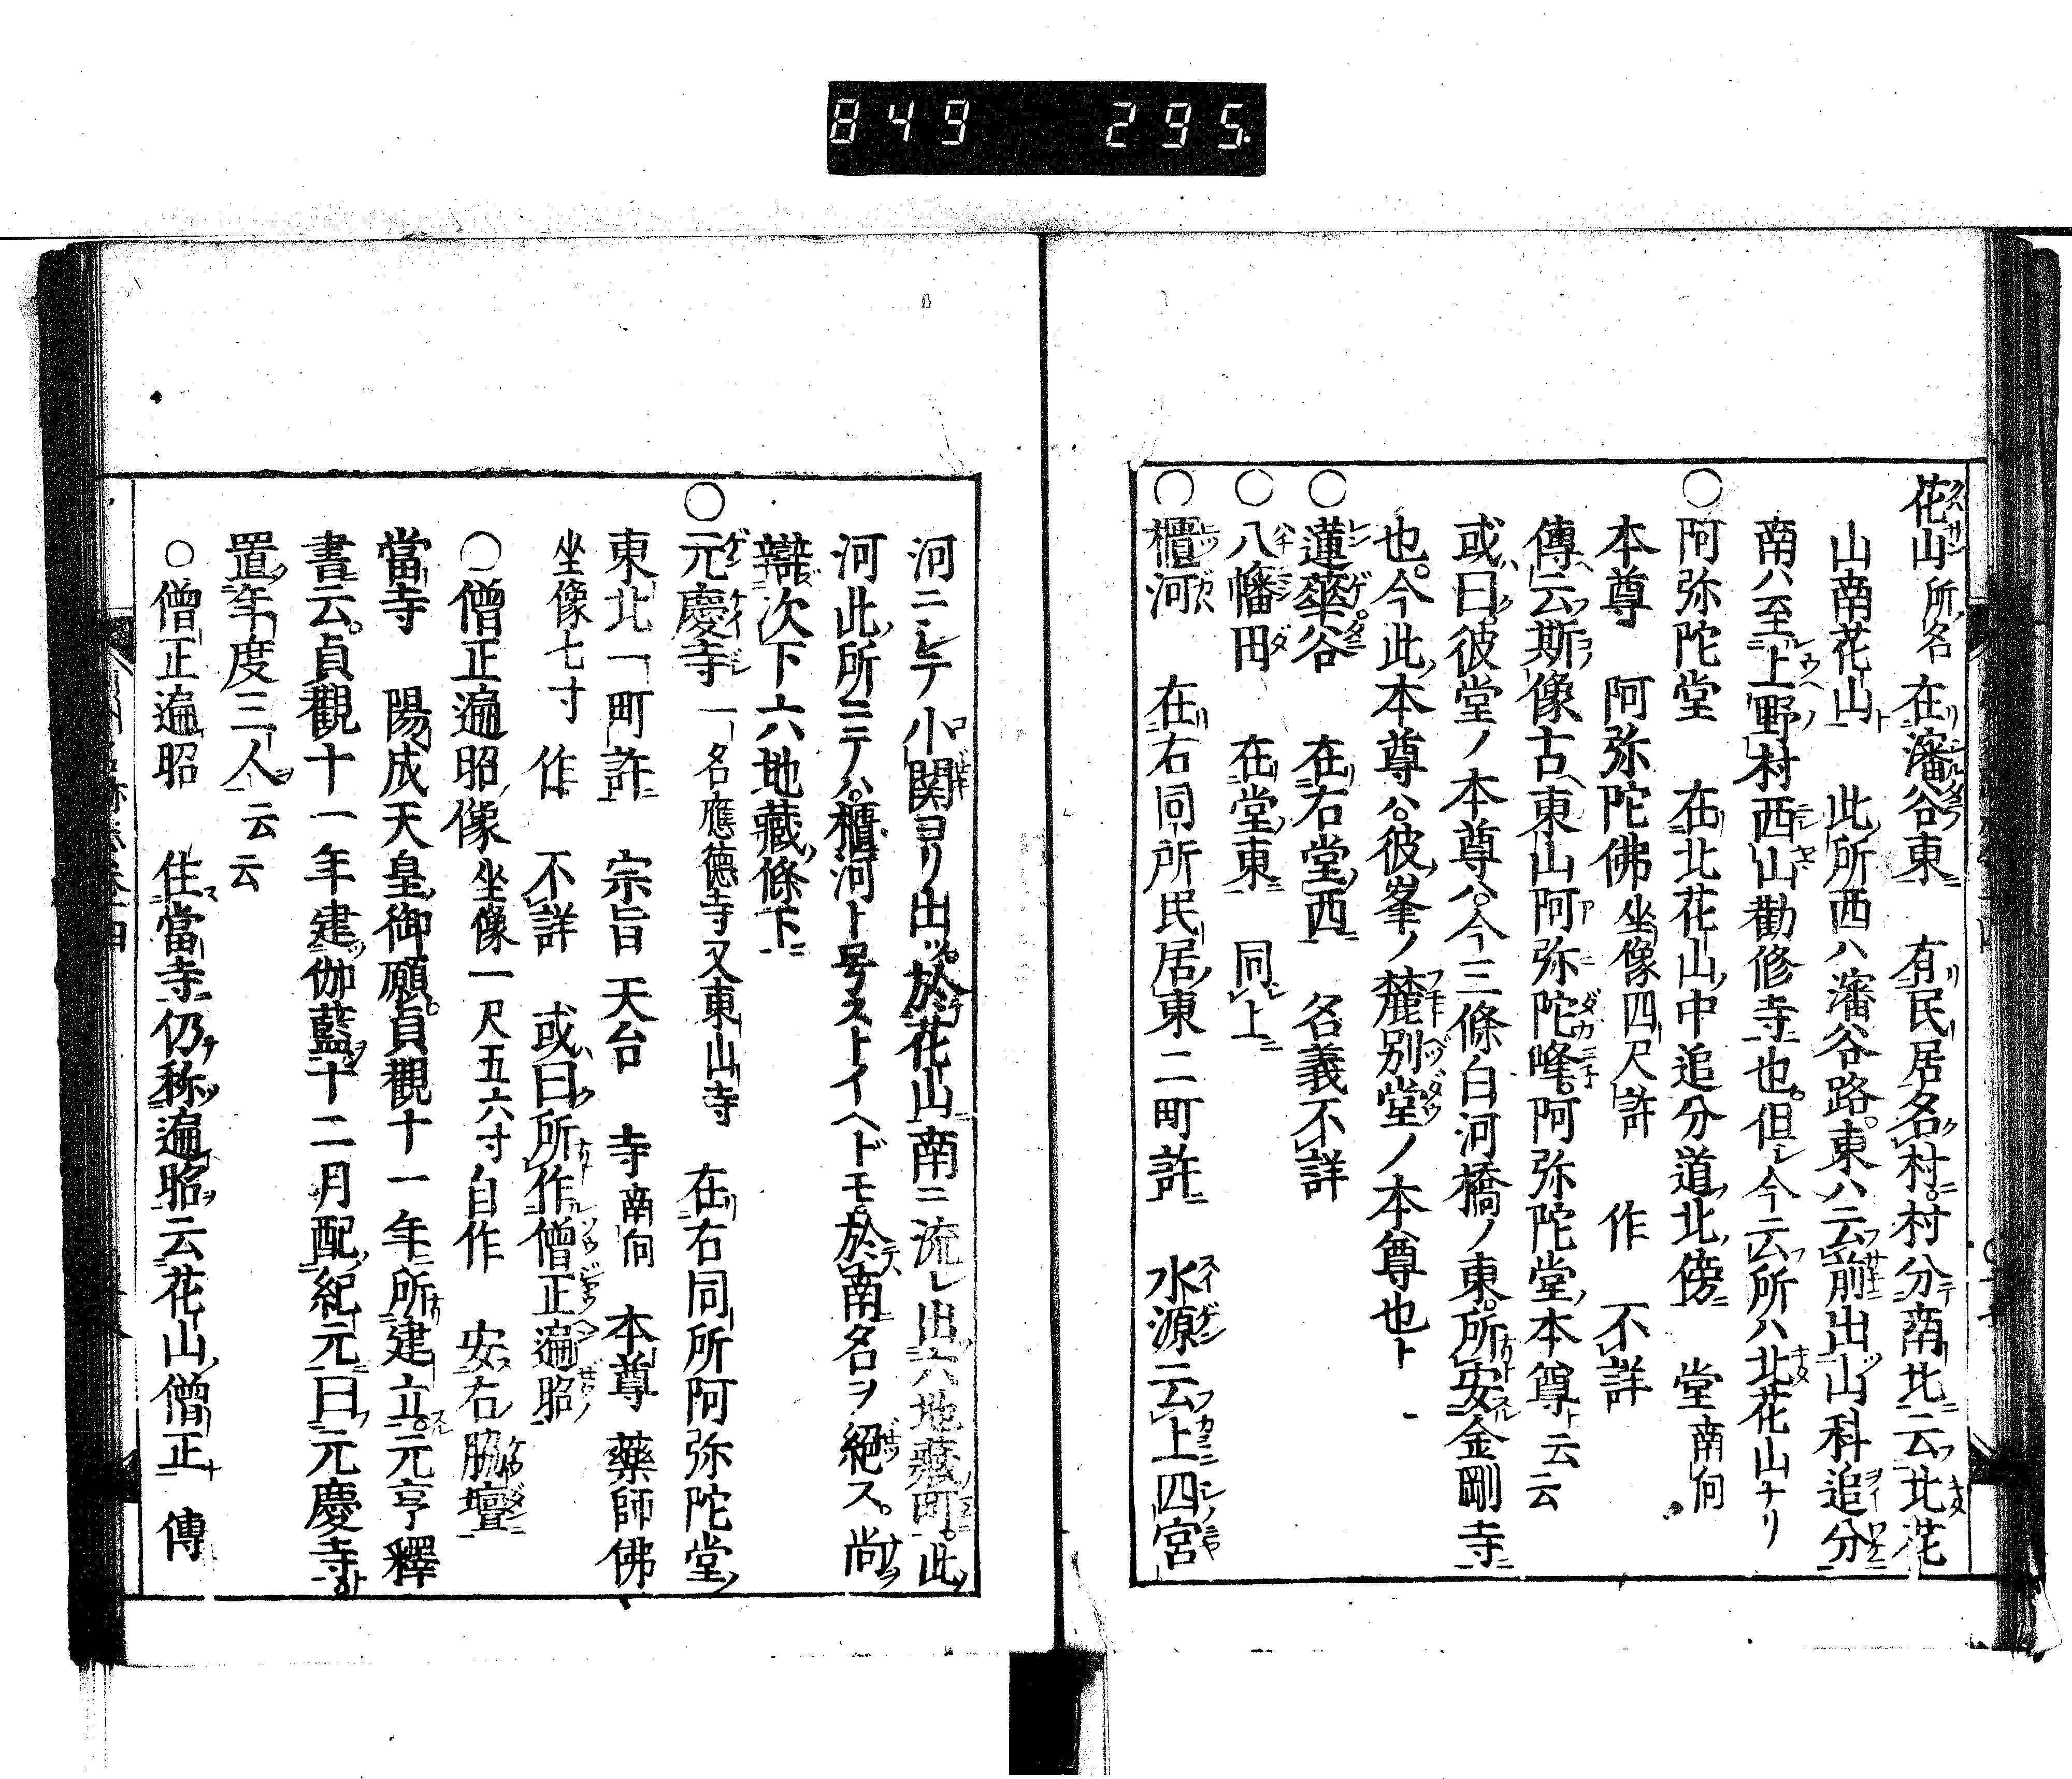 849 295.
花山 所名 在瀋谷東 有民居名村村分南北云北花
山南花山 此所西ハ瀋谷路東ハ云前出山科追分
南ハ至上野村西山勸修寺也但シ今云所ハ北花山ナリ
○阿弥陀堂 在北花山中追分道北傍 堂南向
本尊 阿弥陀佛坐像四尺許 作 不詳
傳云斯像古東山阿弥陀峰阿弥陀堂本尊ト云云
或曰彼堂ノ本尊ハ今三條白河橋ノ東所安金剛寺
也今此本尊ハ彼峯ノ麓別堂ノ本尊也ト
○蓮華谷 在右堂西 名義不詳
○八幡田 在堂東 同上
○櫃河 在右同所民居東二町許 水源云上四宮
河ニシテ小関ヨリ出ッ於花山南ニ流レ出六地藏町此
河此所ニテハ櫃河ト号ストイヘドモ於南名ヲ絕ス尚
辯次下六地藏條下
○元慶寺 一名應德寺又東山寺 在右同所阿弥陀堂
東北一町許 宗旨天台 寺南向 本尊藥師佛
坐像七寸 作 不詳 或曰所作僧正遍昭
○僧正遍昭像 坐像一尺五六寸自作 安右脇壇
當寺 陽成天皇御願貞觀十一年所建立元亨釋
書云貞觀十一年建伽藍十二月配紀元曰元慶寺
置年度三人云云
○僧正遍昭 住當寺仍称遍昭云花山僧正 傳